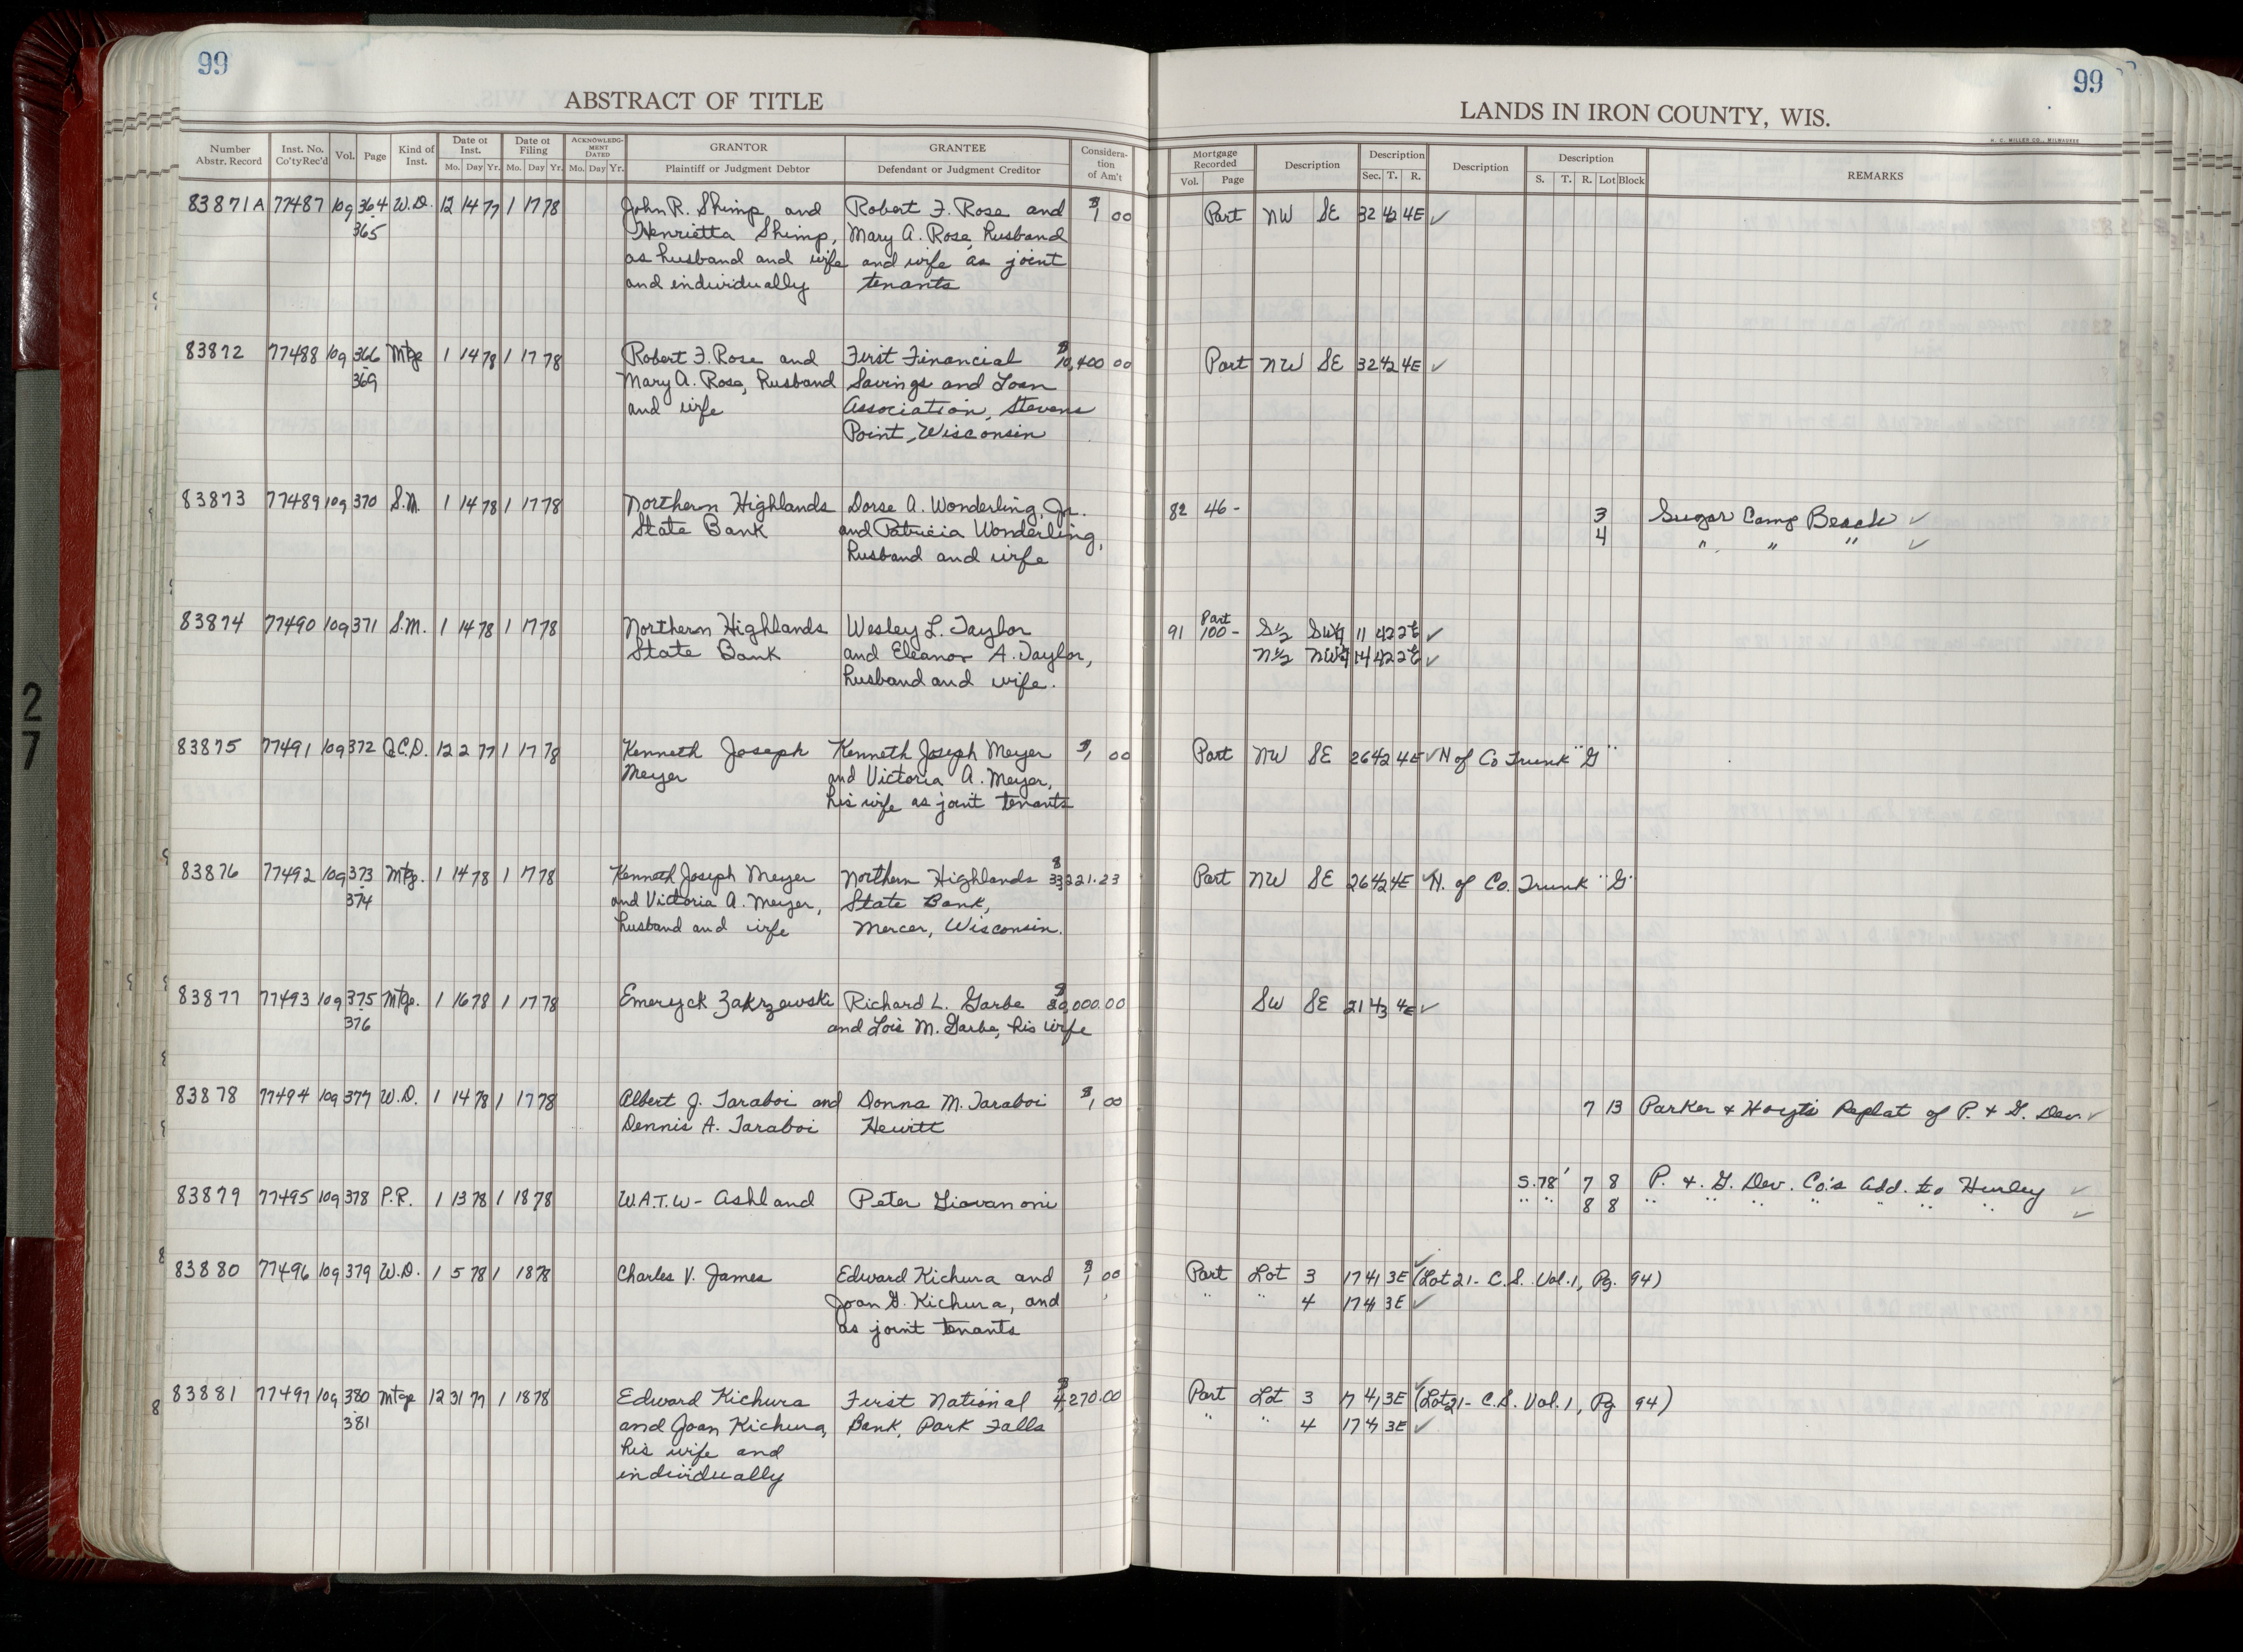 99
99
ABSTRACT OF TITLE
LANDS IN IRON COUNTY, WIS.
H. C. MILLER CO., MILWAUKEE
Number Abstr. Record | Inst. No. Co'ty Rec'd | Vol. | Page | Kind of Inst. | Date of Inst. Mo. Day Yr. | Date of Filing Mo. Day Yr. | ACKNOWLEDGMENT DATED Mo. Day Yr. | GRANTOR Plaintiff or Judgment Debtor | GRANTEE Defendant or Judgment Creditor | Consideration of Am't | Mortgage Recorded Vol. Page | Description | Description Sec. T. R. | Description | Description S. T. R. Lot Block | REMARKS
83871A 77487 109 364 W.D. 12 14 77 1 17 78 John R. Shimp and Robert F. Rose and $1 00 Part NW SE 32 42 4E ✓
- 365 Henrietta Shimp, Mary A. Rose, husband
as husband and wife and wife as joint
and individually tenants
83872 77488 109 366 Mtge 1 14 78 1 17 78 Robert F. Rose and First Financial $10,400 00 Part NW SE 32 42 4E ✓
- 369 Mary A. Rose, husband Savings and Loan
and wife Association, Stevens
Point, Wisconsin
83873 77489 109 370 S.M. 1 14 78 1 17 78 Northern Highlands Dorse A. Wonderling, Jr. 82 46- 3 Sugar Camp Beach ✓
State Bank and Patricia Wonderling, 4 " " " ✓
husband and wife
83874 77490 109 371 S.M. 1 14 78 1 17 78 Northern Highlands Wesley L. Taylor 91 Part 100- S½ SW¼ 11 42 2E ✓
State Bank and Eleanor A. Taylor, N½ NW¼ 14 42 2E ✓
husband and wife.
83875 77491 109 372 Q.C.D. 12 2 77 1 17 78 Kenneth Joseph Kenneth Joseph Meyer $1 00 Part NW SE 26 42 4E ✓ N of Co Trunk "G"
Meyer and Victoria A. Meyer,
his wife as joint tenants
83876 77492 109 373 Mtg. 1 14 78 1 17 78 Kenneth Joseph Meyer Northern Highlands $33,221.23 Part NW SE 26 42 4E ✓ N. of Co. Trunk "G"
- 374 and Victoria A. Meyer, State Bank,
husband and wife Mercer, Wisconsin.
83877 77493 109 375 Mtge. 1 16 78 1 17 78 Emeryck Zakrzewski Richard L. Garbe $20,000.00 SW SE 21 43 4E ✓
- 376 and Lois M. Garbe, his wife
83878 77494 109 377 W.D. 1 14 78 1 17 78 Albert J. Taraboi and Donna M. Taraboi $1 00 7 13 Parker & Hoyt's Replat of P. & G. Dev. ✓
Dennis A. Taraboi Hewitt
83879 77495 109 378 P.R. 1 13 78 1 18 78 W.A.T.W - Ashland Peter Giovanoni S.78' 7 8 P. & G. Dev. Co's Add. to Hurley ✓
" " 8 8 " " " " " " " ✓
83880 77496 109 379 W.D. 1 5 78 1 18 78 Charles V. James Edward Kichura and $1 00 Part Lot 3 17 41 3E ✓ (Lot 21- C.S. Vol.1, Pg. 94)
Joan G. Kichura, and " " 4 17 41 3E ✓
as joint tenants
83881 77497 109 380 Mtge 12 31 77 1 18 78 Edward Kichura First National $4,270.00 Part Lot 3 17 41 3E (Lot 21- C.S. Vol.1, Pg 94)
- 381 and Joan Kichura, Bank, Park Falls " " 4 17 41 3E ✓
his wife and
individually
27